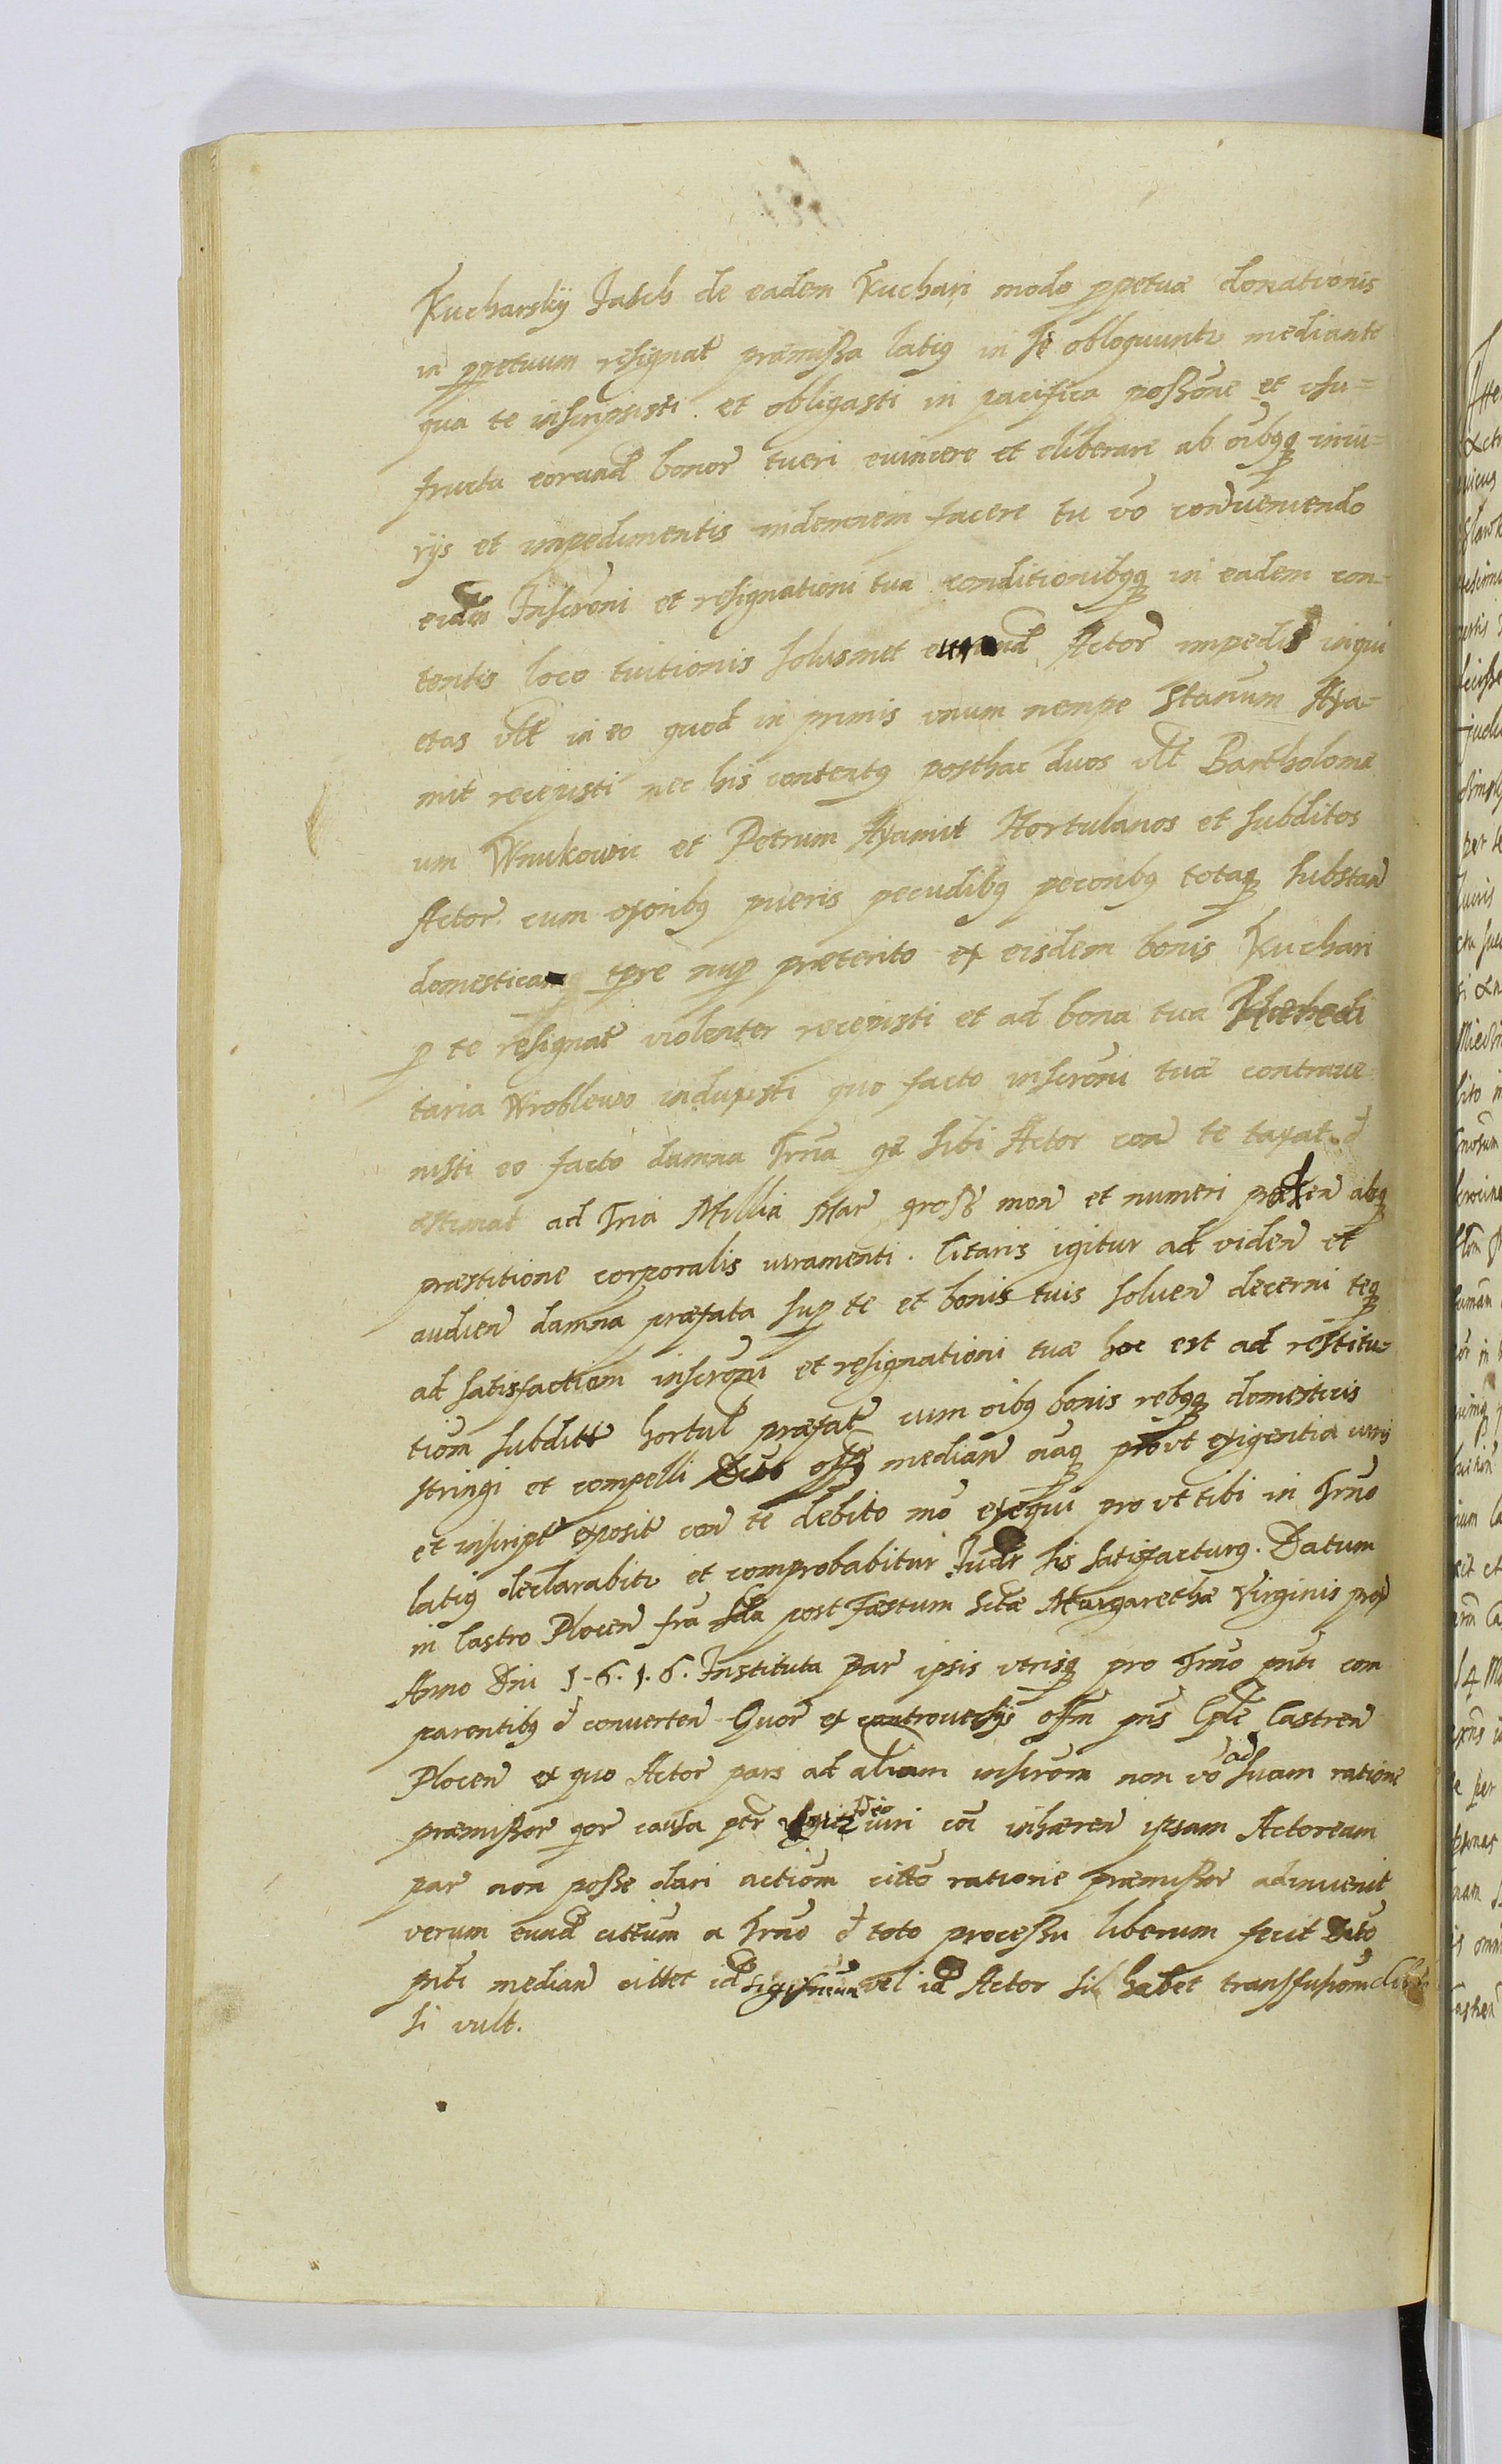 Kucharskij Jasch de eadem Kuchari modo ppetuæ donationis
in ppetuum resignat præmissa latius in se obloquuntr mediante
qua te inscripsisti et obligasti in pacifica possõne et usu=
fructu eorund bonor tueri evincere et eliberare ab oibusq iniu=
rijs et impedimentis indemnem facere tu vo convenvendo
eidem Inscrõni et resignationi tuæ conditionibusq in eadem con=
tentis loco tuitionis solusmet eund Actor impedis inqui
etas vtt in eo quod in primis unum nempe Stanum Ayа=
mit recepisti nec his contentus posthac duos vtt Bartholome
um Wnukowic et Petrum Ayamit Hortulanos et subditos
Actor cum uxoribus pueris pecudibus pecoribus totaq substan
domestica tpre nup præterito ex eisdem bonis Kuchari
p te resignat violenter recepisti et ad bona tua hæredi
taria Wroblewo induxisti quo facto inscrõni tuæ contrave
nisti eo facto damna Trna quæ sibi Actor con te taxat et
æstimat ad Tria Millia Mar gross mon et numeri polen absq
præstitione corporalis iuramenti. Citaris igitur ad viden et
audien damna præfata sup te et bonis tuis solven decerni teq
ad satisfactiom inscrõni et resignationi tuæ hoc est ad restitu=
tiom subditt hortul præfat cum oibus bonis rebusq domesticis
stringi et compelli median ouaq prout exigentia iuris
et inscript exposit con te debito mo exequi pro ut tibi in Trno
latius declarabitr et comprobabitur Judr his satisfacturus. Datum
in Castro Plocen fra 2da post Fæstum Sctæ Margarethæ Virginis prox
Anno Dni 1.6.1.6. Instituta Par ipsis utrisq pro Trno pnti com
parentibus et converten Quor ex controversijs offm pns Cple Castren
Plocen ex quo Actor pars ad aliam inscrõm non vo ad suam ratione
præmissor qor causa per ideo iuri coi inhæren ipsam Actoream
par non posse dari actiom citto ratione præmissor adinvenit
verum eund cittum a Trno et toto processu liberum fecit Dto
pnti median cittet id vel id Actor si habet transfusiom
si vult.